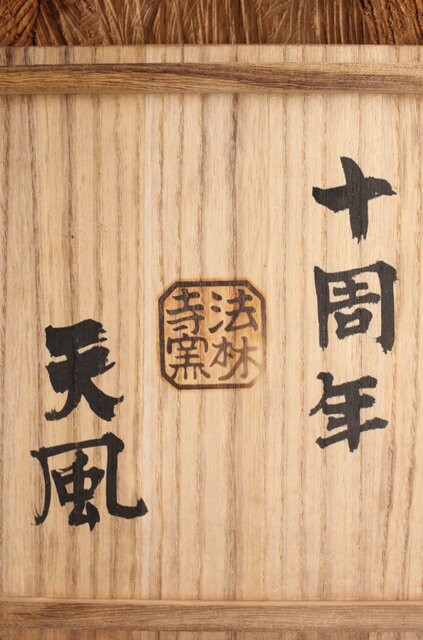 十周年
法林
寺窯
天風